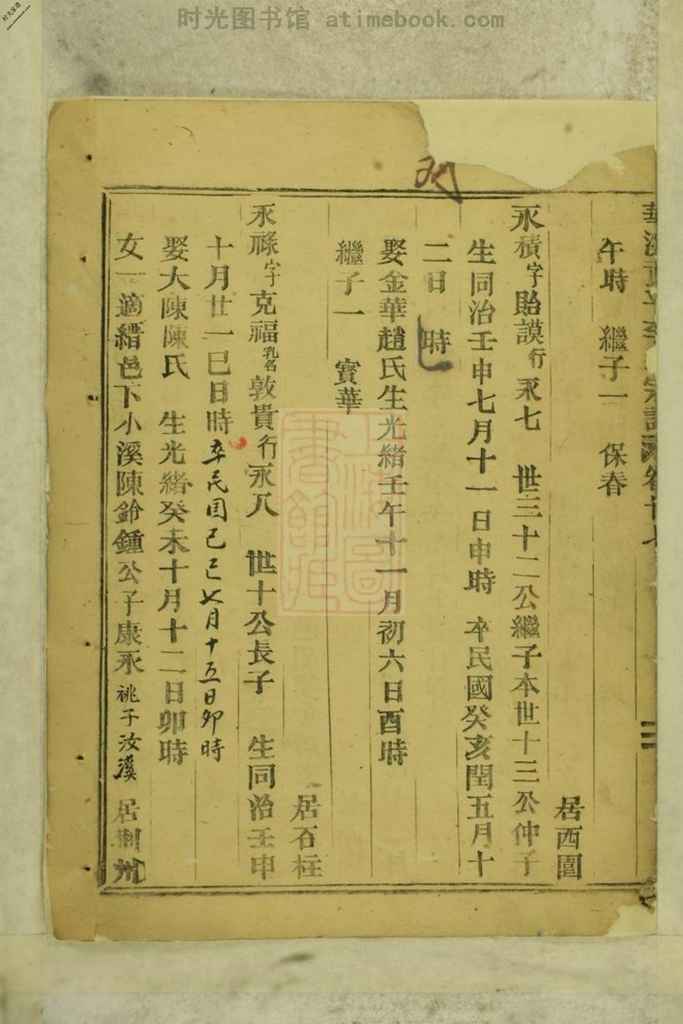 时光图书馆 atimebook.com
午時　繼子一　保春
居西園
永積字貽謨行永七　世三十二公繼子本世十三公仲子
生同治壬申七月十一日申時　卒民國癸亥閏五月十
二日　時
娶金華趙氏生光緒壬午十一月初六日酉時
繼子一　寶華
居石柱
永祿字克福乳名敦貴行永八　世十公長子　生同治壬申
十月廿一巳日時卒民国己巳七月十五日卯時
娶大陳陳氏　生光緒癸未十月十二日卯時
女一適縉邑下小溪陳鈴鍾公子康永　祧子汝溪　居荆州